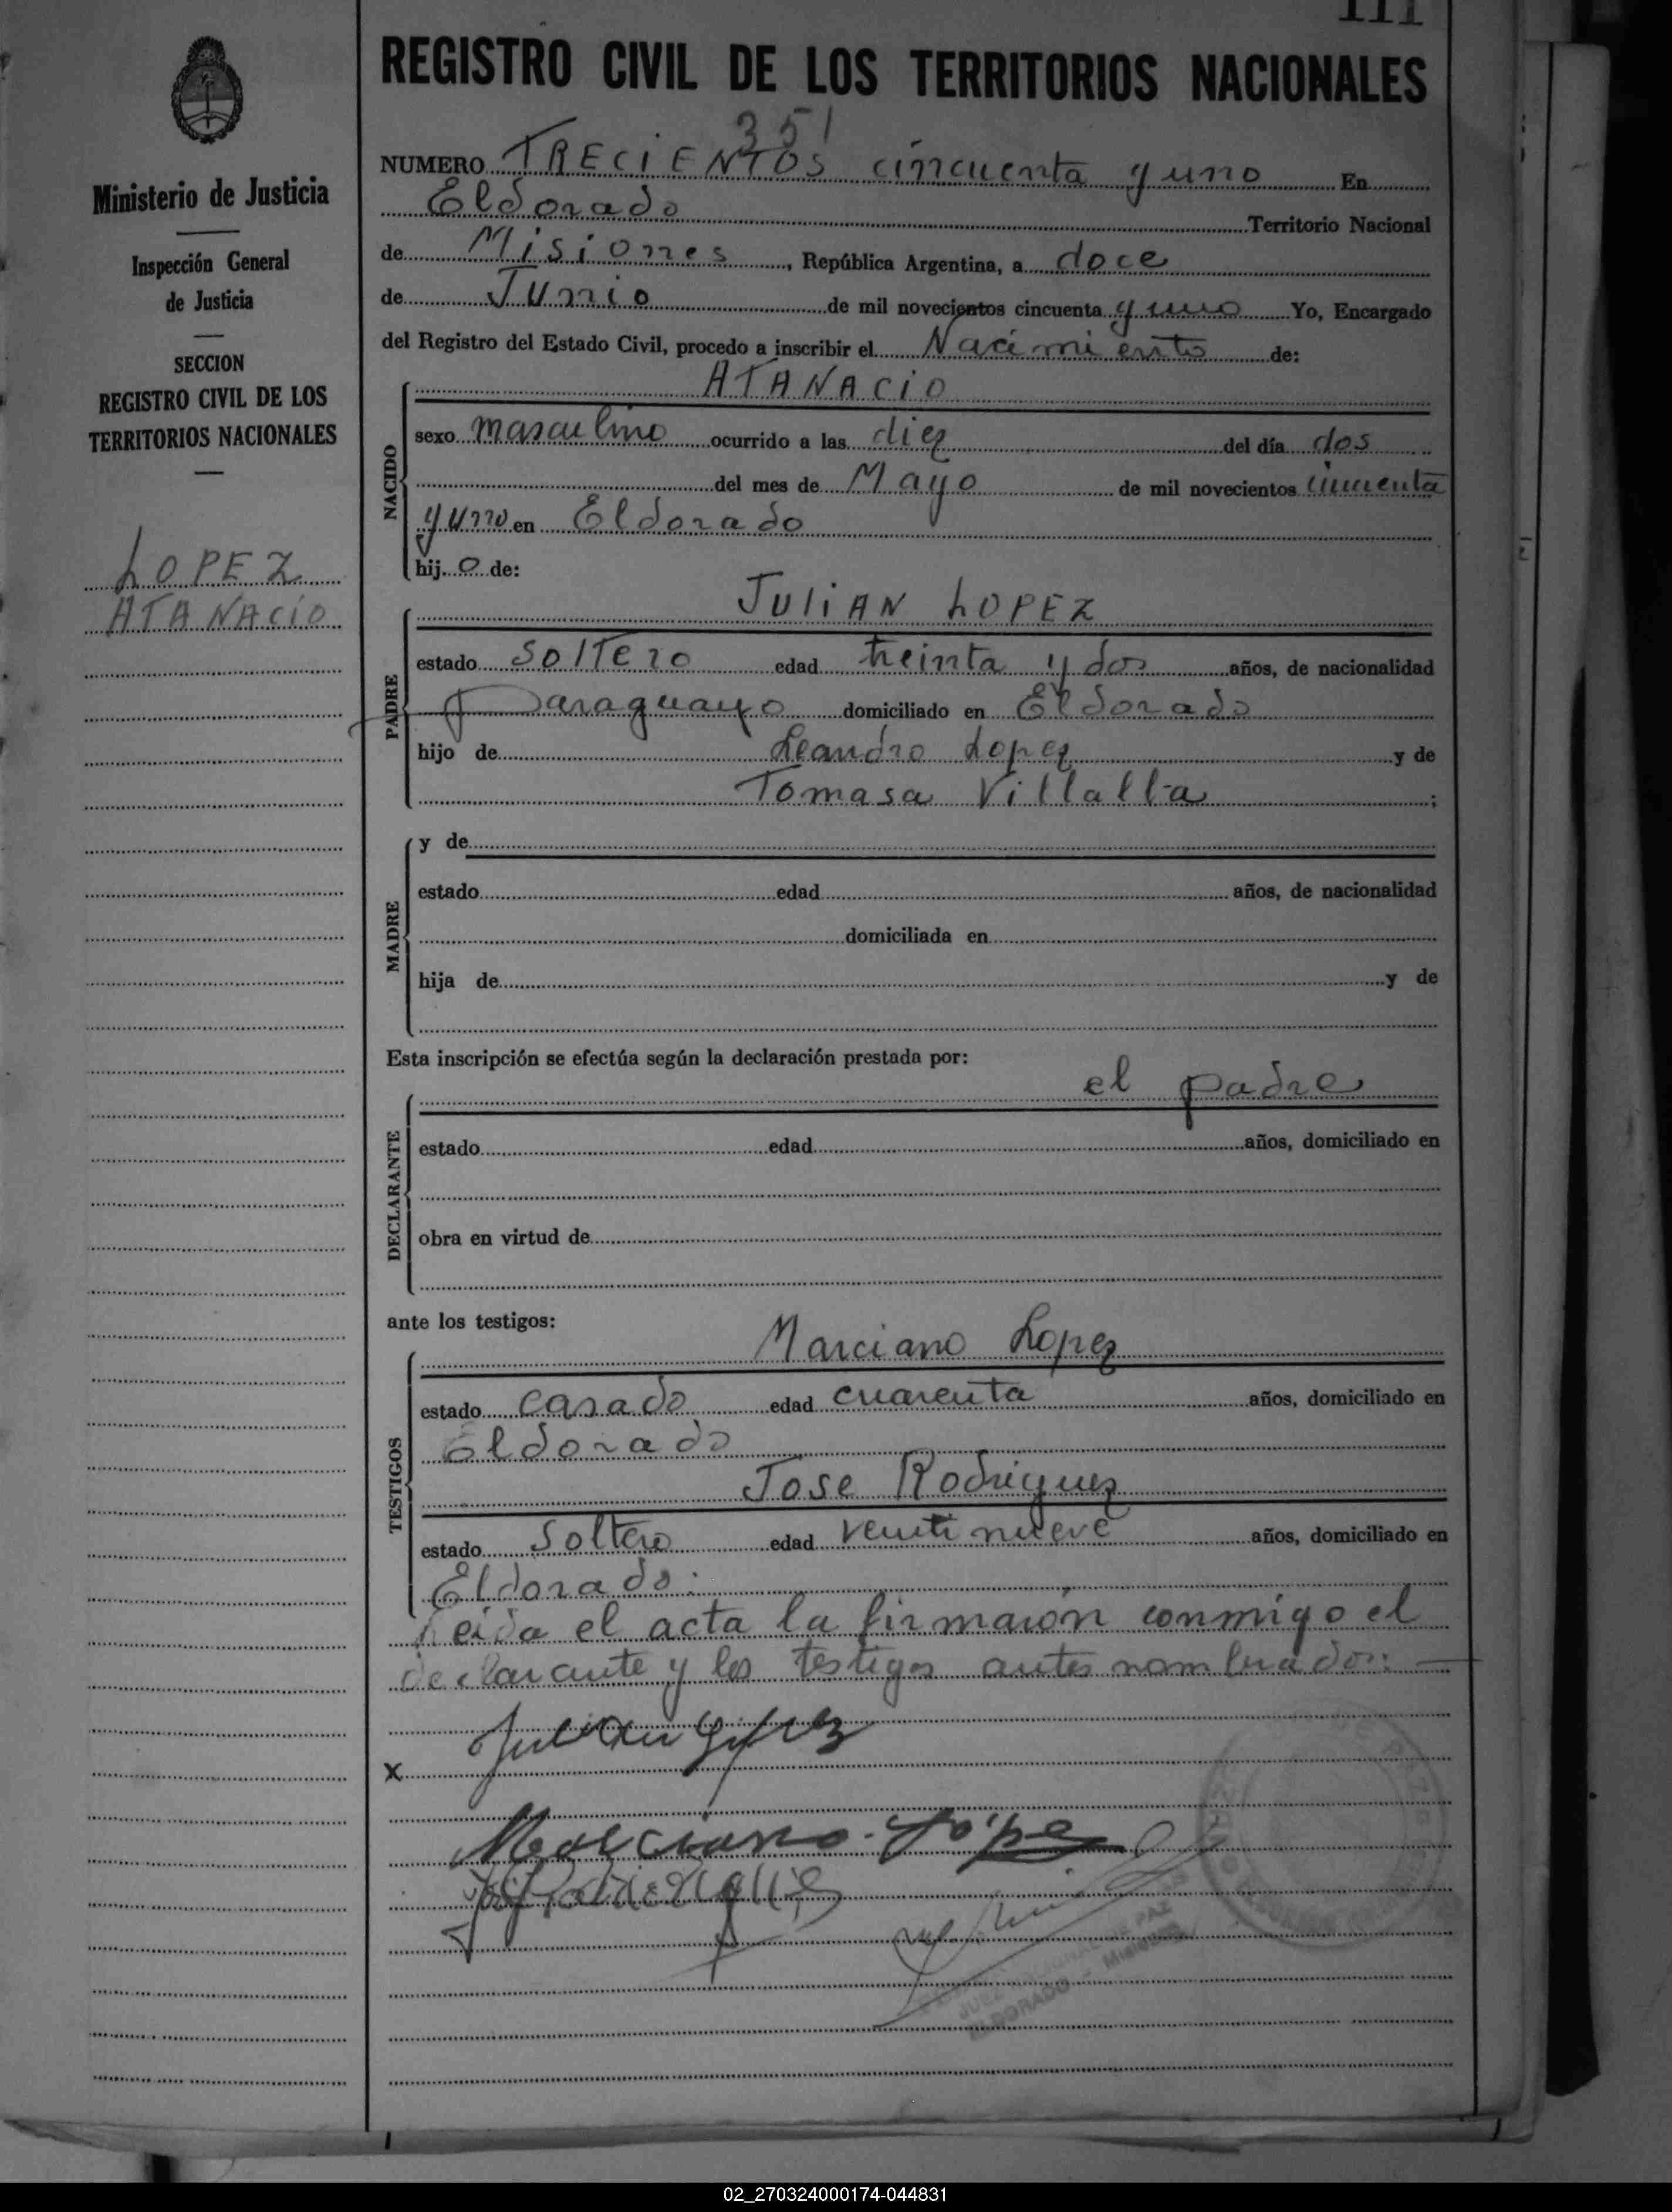 111
REGISTRO CIVIL DE LOS TERRITORIOS NACIONALES
351
NUMERO TRECIENTOS cincuenta y uno En
Eldorado Territorio Nacional
de Misiones, República Argentina, a doce
de Junio de mil novecientos cincuenta y uno Yo, Encargado
del Registro del Estado Civil, procedo a inscribir el Nacimiento de:
Ministerio de Justicia
Inspección General
de Justicia
SECCION
REGISTRO CIVIL DE LOS
TERRITORIOS NACIONALES
LOPEZ
ATANACIO
NACIDO
ATANACIO
sexo masculino ocurrido a las diez del día dos
del mes de Mayo de mil novecientos cincuenta
y uno en Eldorado
hijo de:
PADRE
JULIAN LOPEZ
estado SOLTERO edad treinta y dos años, de nacionalidad
Paraguayo domiciliado en Eldorado
hijo de Leandro Lopez y de
Tomasa Villalba;
MADRE
y de
estado edad años, de nacionalidad
domiciliada en
hija de y de
Esta inscripción se efectúa según la declaración prestada por:
DECLARANTE
el padre
estado edad años, domiciliado en
obra en virtud de
ante los testigos:
TESTIGOS
Marciano Lopez
estado casado edad cuarenta años, domiciliado en
Eldorado
Jose Rodriguez
estado Soltero edad veinti nueve años, domiciliado en
Eldorado.
Leida el acta la firmaron conmigo el
declarante y los testigos antes nombrados:
Julian Lopez
X
Marciano Lopez
JUEZ DE PAZ
ELDORADO - Misiones
02_270324000174-044831